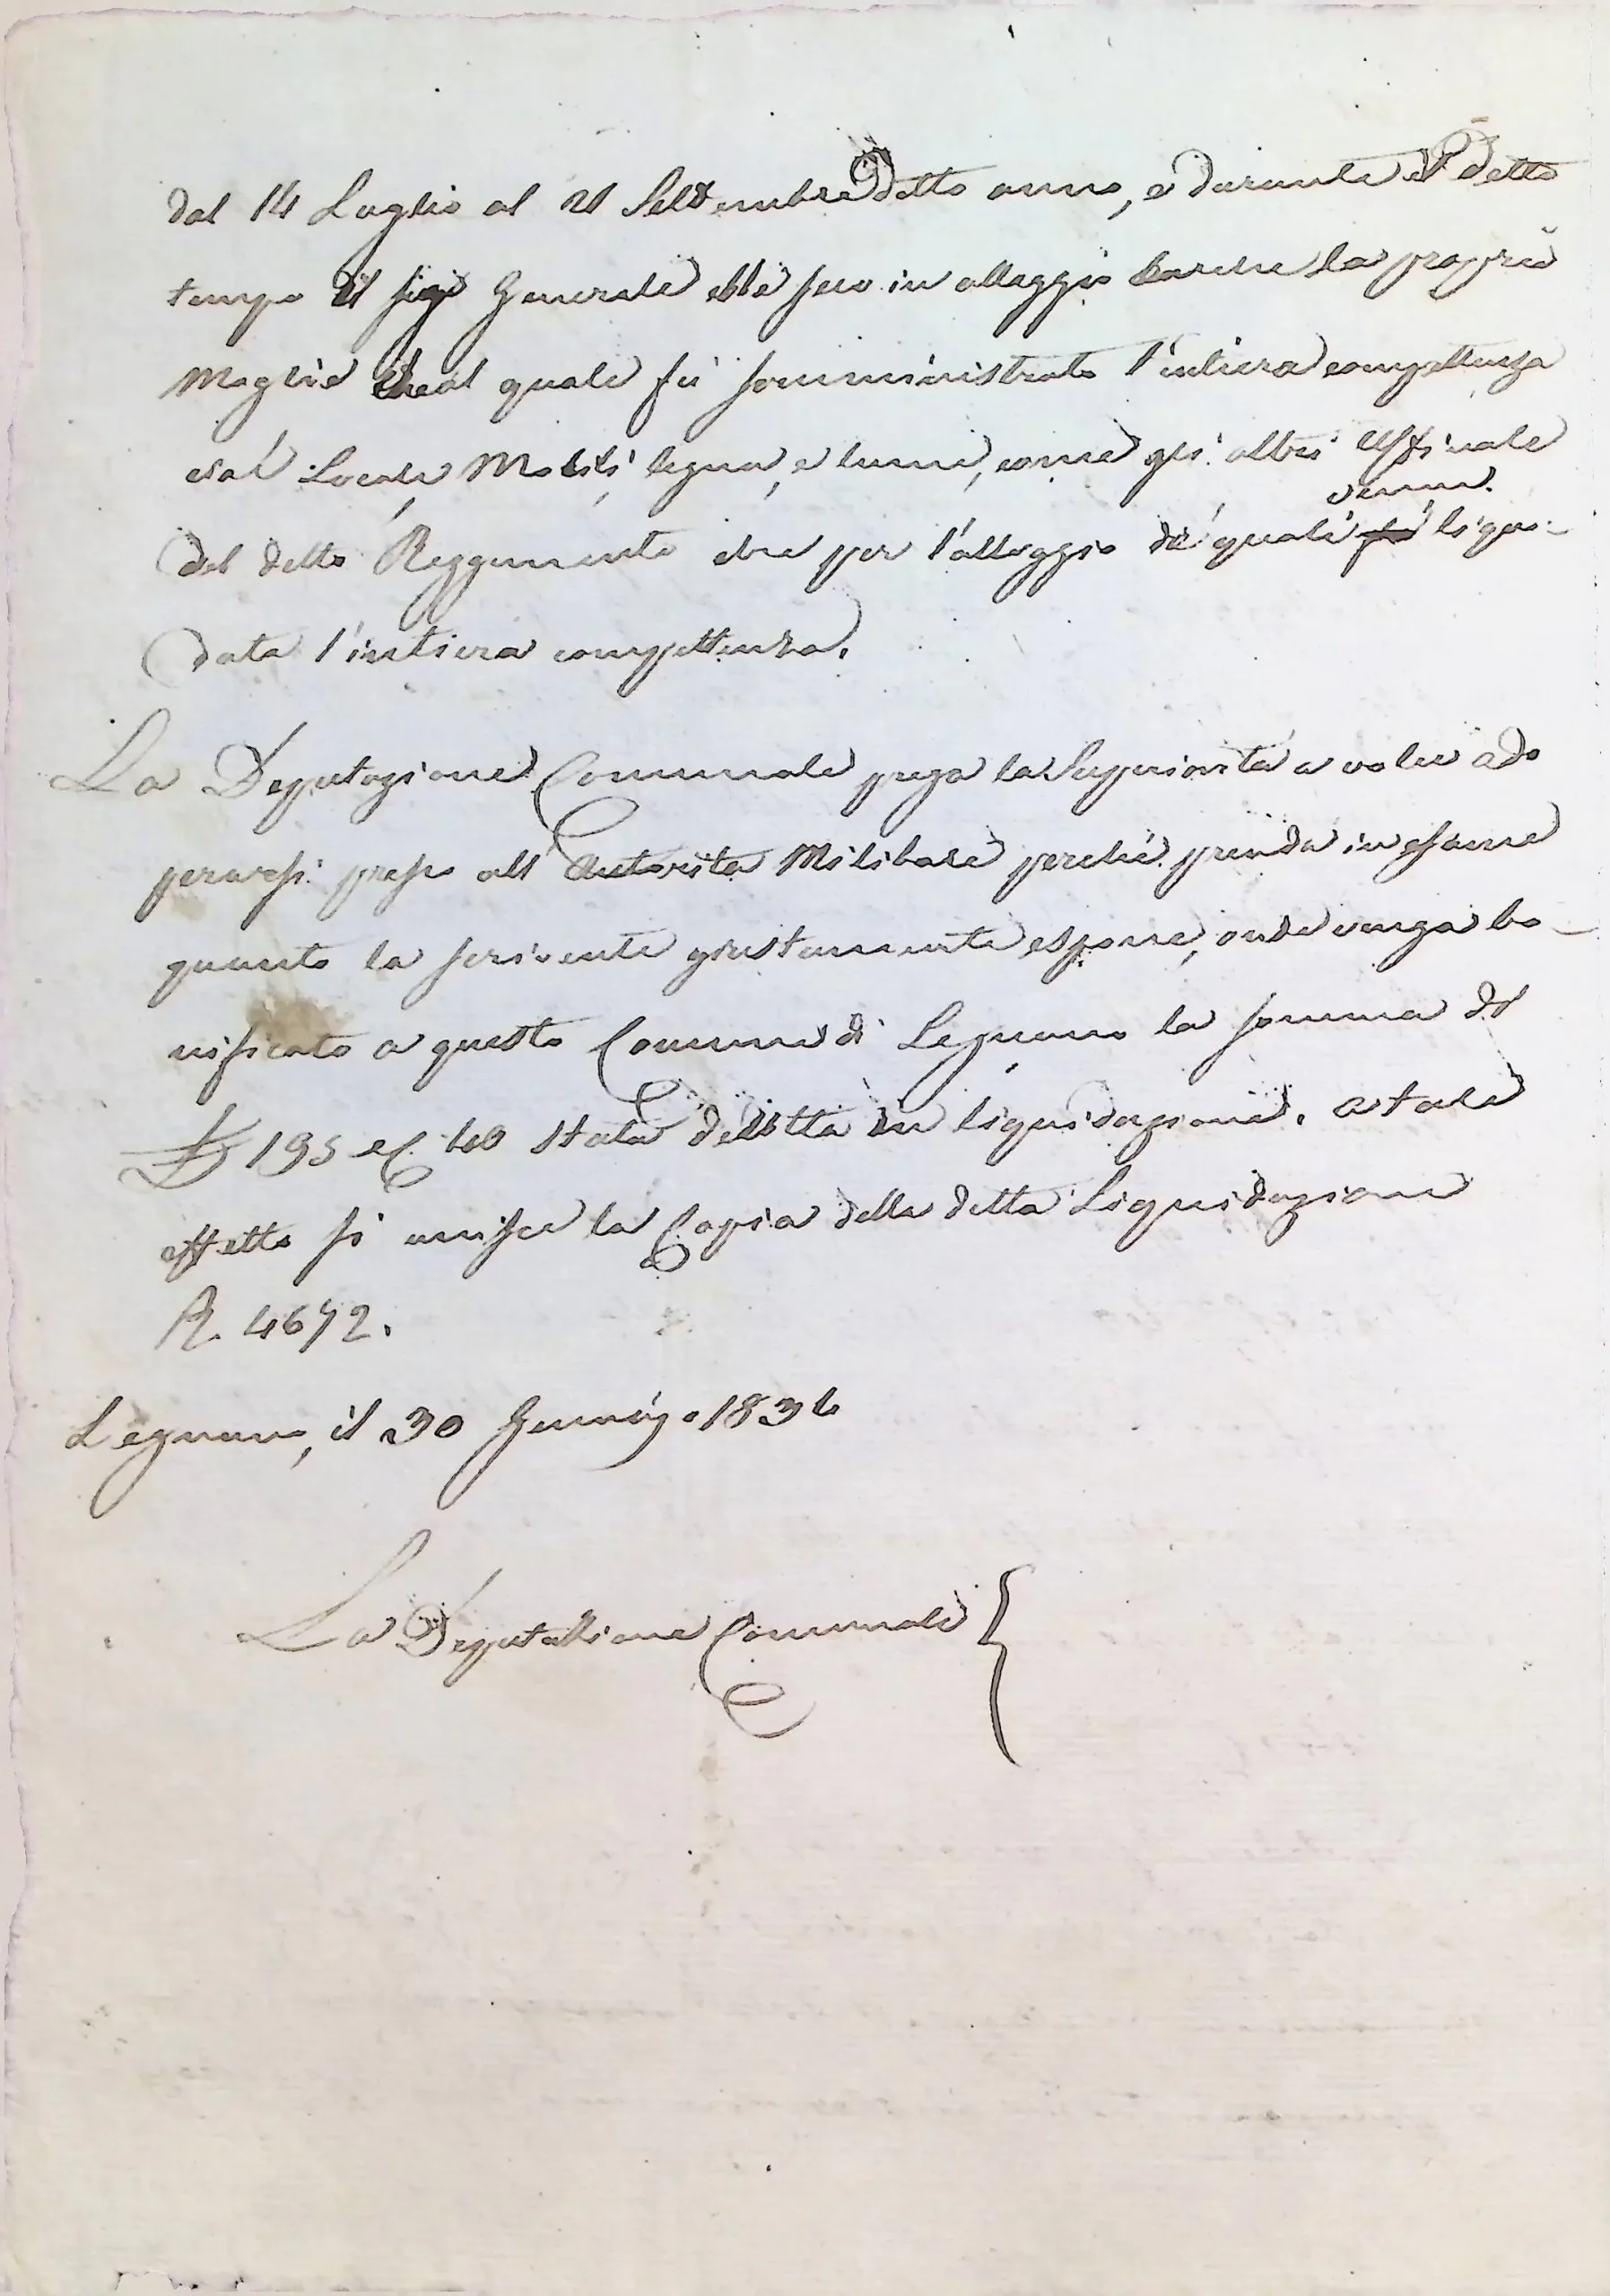 dal 14 Luglio al 21 Settembre detto anno, e durante il detto
tempo il Sig Generale ebbe seco in alloggio anche la propria
Moglie al quale fù somministrato l'intiera compettenza
cioè Locale Mobili, legna, e lumi, come gli altri Uffiziale
venn.
del detto Reggimento che per l'alloggio de' quali liqui-
data l'intiera compettenza.
La Deputazione Comunale prega la Superiorità a voler ado
perarsi presso all' Autorità Militare perchè prenda in esame
quanto la scrivente giustamente espone, onde venga bo-
nificato a questo Comune di Legnano la somma di
£ 195 e C. 40 stata dedotta in liquidazione. a tale
effetto si unisce la Copia della detta Liquidazione
N. 4672.
Legnano, il 30 1836
La Deputazione Comunale {